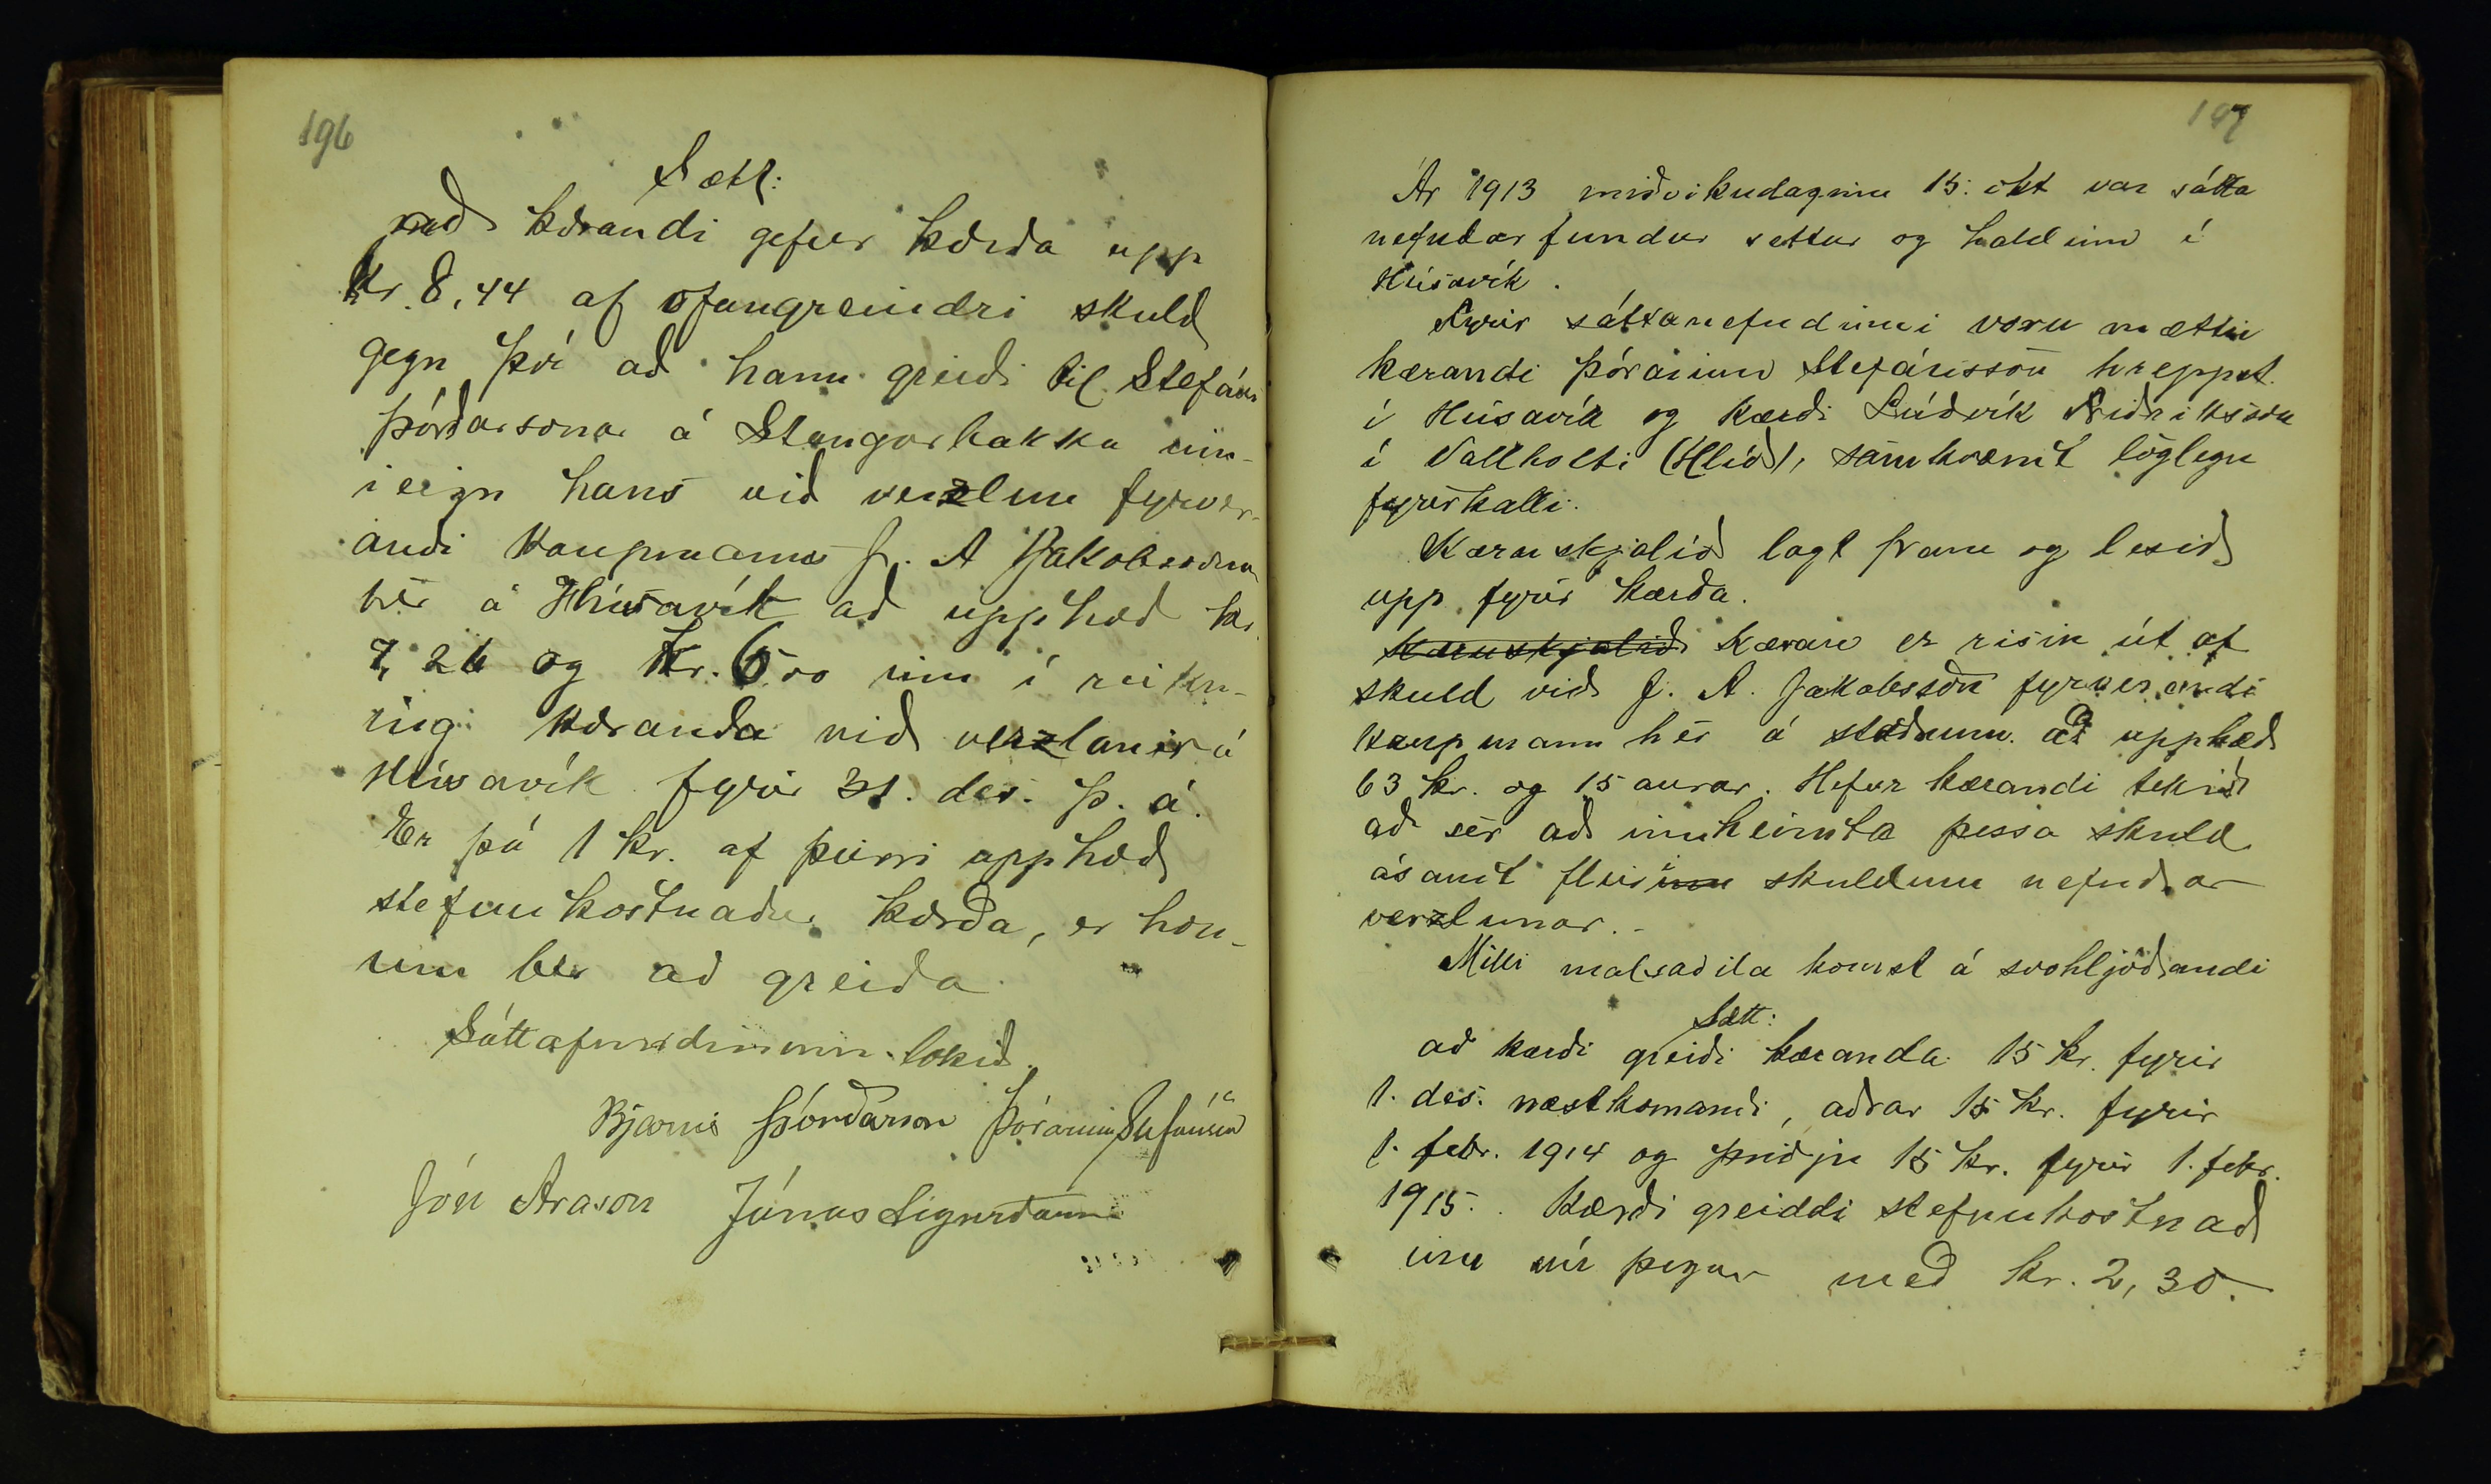 196
Sætt:
að kærandi gefur kærða upp
kr. 8,44 af ofangreindri skuld
gegn því að hann greiði til Stefáns
Þórðarsonar á Stangarbakka inn-
ieign hans við verzlun fyrver-
andi kaupmanns J. A Jakobssonar
hér á Húsavík að upphæð kr.
7,26 og kr. 6oo inn í reikn-
ing kæranda við verzlanir á
Húsavík fyrir 31. des. þ. á.
Er þá 1 kr. af þeirri upphæð
stefnukostnaður kærða, er hon-
um ber að greiða.
Sáttafundinum lokið.
Bjarni Þórðarson Þórarinn Stefánsson
Jón Arason Jónas Sigurðsson
197
Ár 1913 miðvikudaginn 15. okt var sátta
nefndar fundur settur og haldinn í
Húsavík.
Fyrir sáttanefndinni voru mættir
kærandi Þórarinn Stefánsson hreppst.
í Húsavík og kærði Lúðvík Friðriksson
í Vallholti (Hlíð), samkvæmt löglegu
fyrirkalli.
Kæruskjalið lagt fram og lesið
upp fyrir kærða.
Kæruskjalið Kæran er risin út af
skuld við J. A. Jakobsson fyrverandi
kaupmann hér á staðnum að upphæð
63 kr. og 15 aurar. Hefur kærandi tekið
að sér að innheimta þessa skuld
ásamt fleiri skuldum nefndrar
verzlunar.-
Milli malsaðila komst á svohljóðandi
Sætt:
að kærði greiði kæranda 15 kr. fyrir
1. des. næstkomandi, aðrar 15 kr. fyrir
1. febr. 1914 og þriðju 15 kr. fyrir 1. febr.
1915. Kærði greiddi stefnukostnað
inn nú þegar með kr. 2,30.